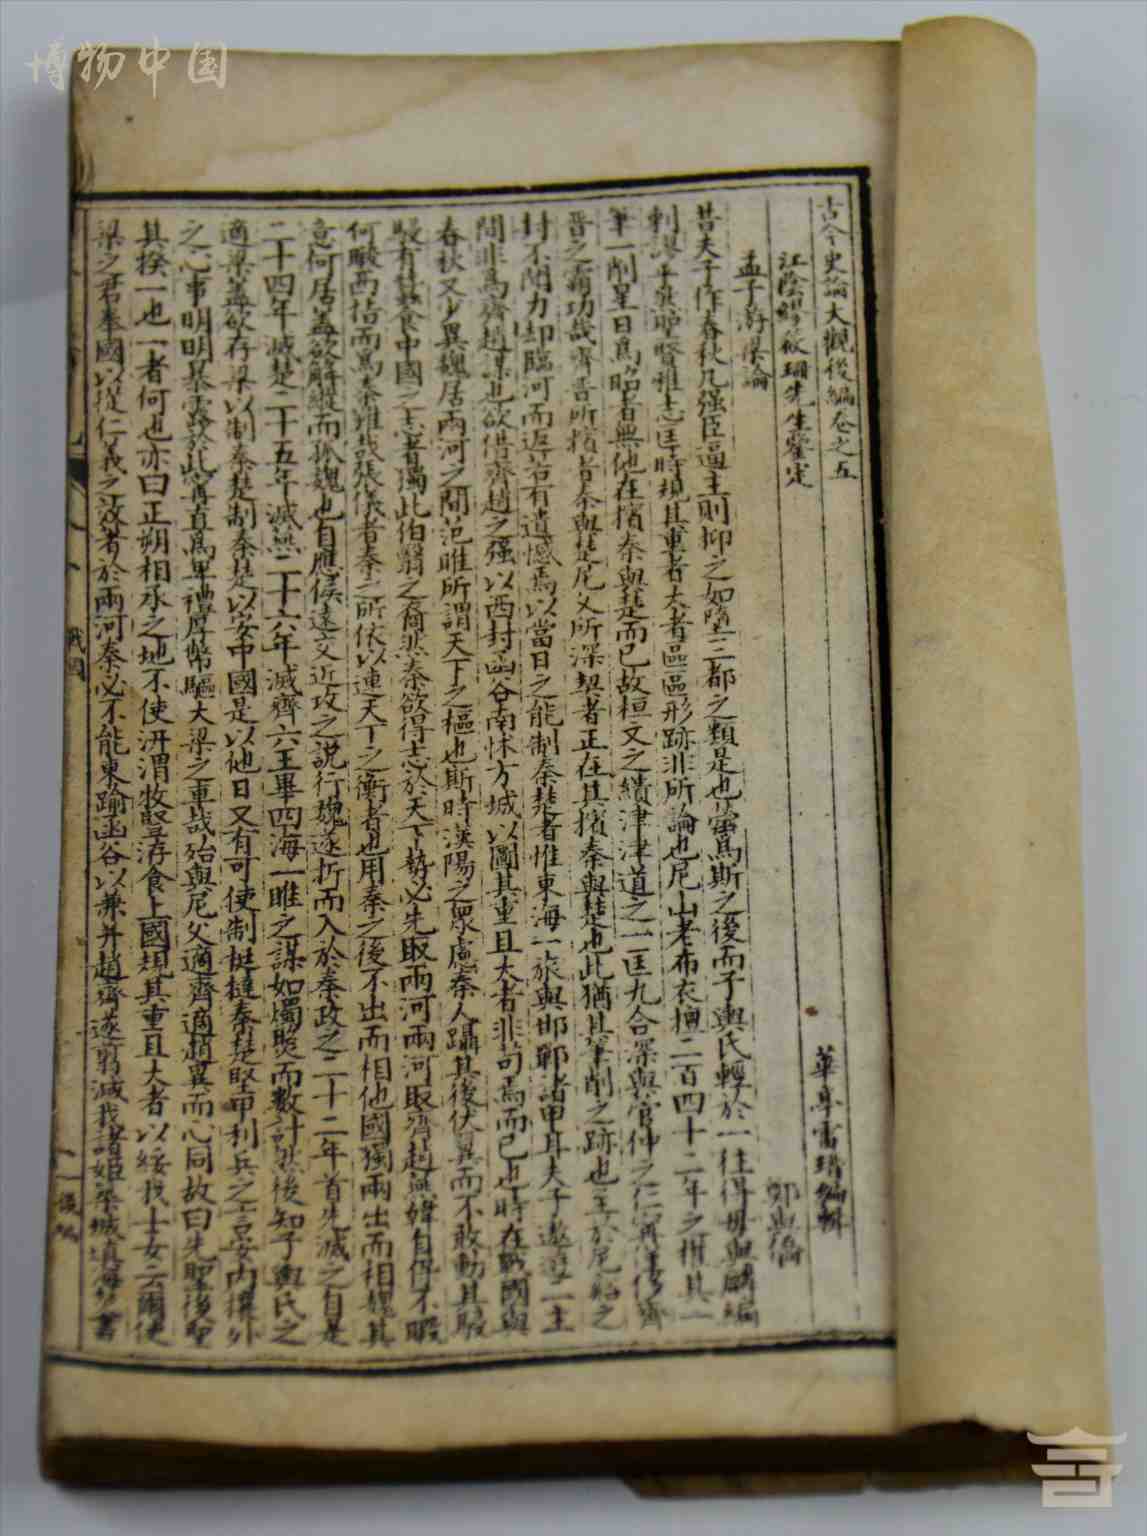 博物中国
古今史論大觀後編卷之五
江陰繆筱珊先生鑒定
華亭雷瑨編輯
孟子游梁論
鄒與僑
昔夫子作春秋凡强臣逼主則抑之如墮三都之類是也當爲斯之後而子輿氏輕於一往得毋與麟編
刺謬乎與聖賢推志匡時規其重者大者區區形跡非所論也尼山老布衣擅二百四十二年之權其一
筆一削星日爲昭者無他在擯秦與楚而已故桓文之績津津道之一匡九合深與管仲之仁
晉之霸功哉齊晋所擯者秦與楚尼父所深契者正在其擯秦與楚也此猶其筆削之跡也至於
封不閉力却臨河而返若有遺憾焉以當日之能制秦楚者惟東海一旅與邯鄲諸甲耳夫子遨遊一主
間非爲齊趙謀也欲借齊趙之强以西封函谷南怵方城以圖其重且大者非苟焉而已也時在戰國與
春秋又少異魏居兩河之間范雎所謂天下之樞也斯時漢陽之衆慮秦人躡其後伏翼而不敢動其駸
駸有蠶食中國之志者獨此伯翳之裔耳秦欲得志於天下勢必先取兩河兩河取齊趙燕韓自得不暇
何暇西指而爲秦難哉張儀者秦之所依以連天下之衡者也用秦之後不出而相他國獨兩出而相魏其
意何居蓋欲解縱而孤魏也自應侯遠交近攻之説行魏遂折而入於秦政之二十二年首先滅之自是
二十四年滅楚二十五年滅燕二十六年滅齊六王畢四海一雎之謀如燭照而數計然後知子輿氏之
適梁蓋欲存梁以制秦楚制秦楚以安中國是以他日又有可使制梃撻秦楚堅甲利兵之言安内攘外
之心事明明暴露於此寧直爲卑禮厚幣驅大梁之車哉殆與尼父適齊適趙異而心同故曰先聖後聖
其揆一也一者何也亦曰正朔相承之地不使汧渭牧豎洊食上國規其重且大者以綏我士女云爾使
梁之君奉國以從仁義之效著於兩河秦必不能東踰函谷以兼并趙齊遂翦滅我諸姬梁城
戰國
一
後編